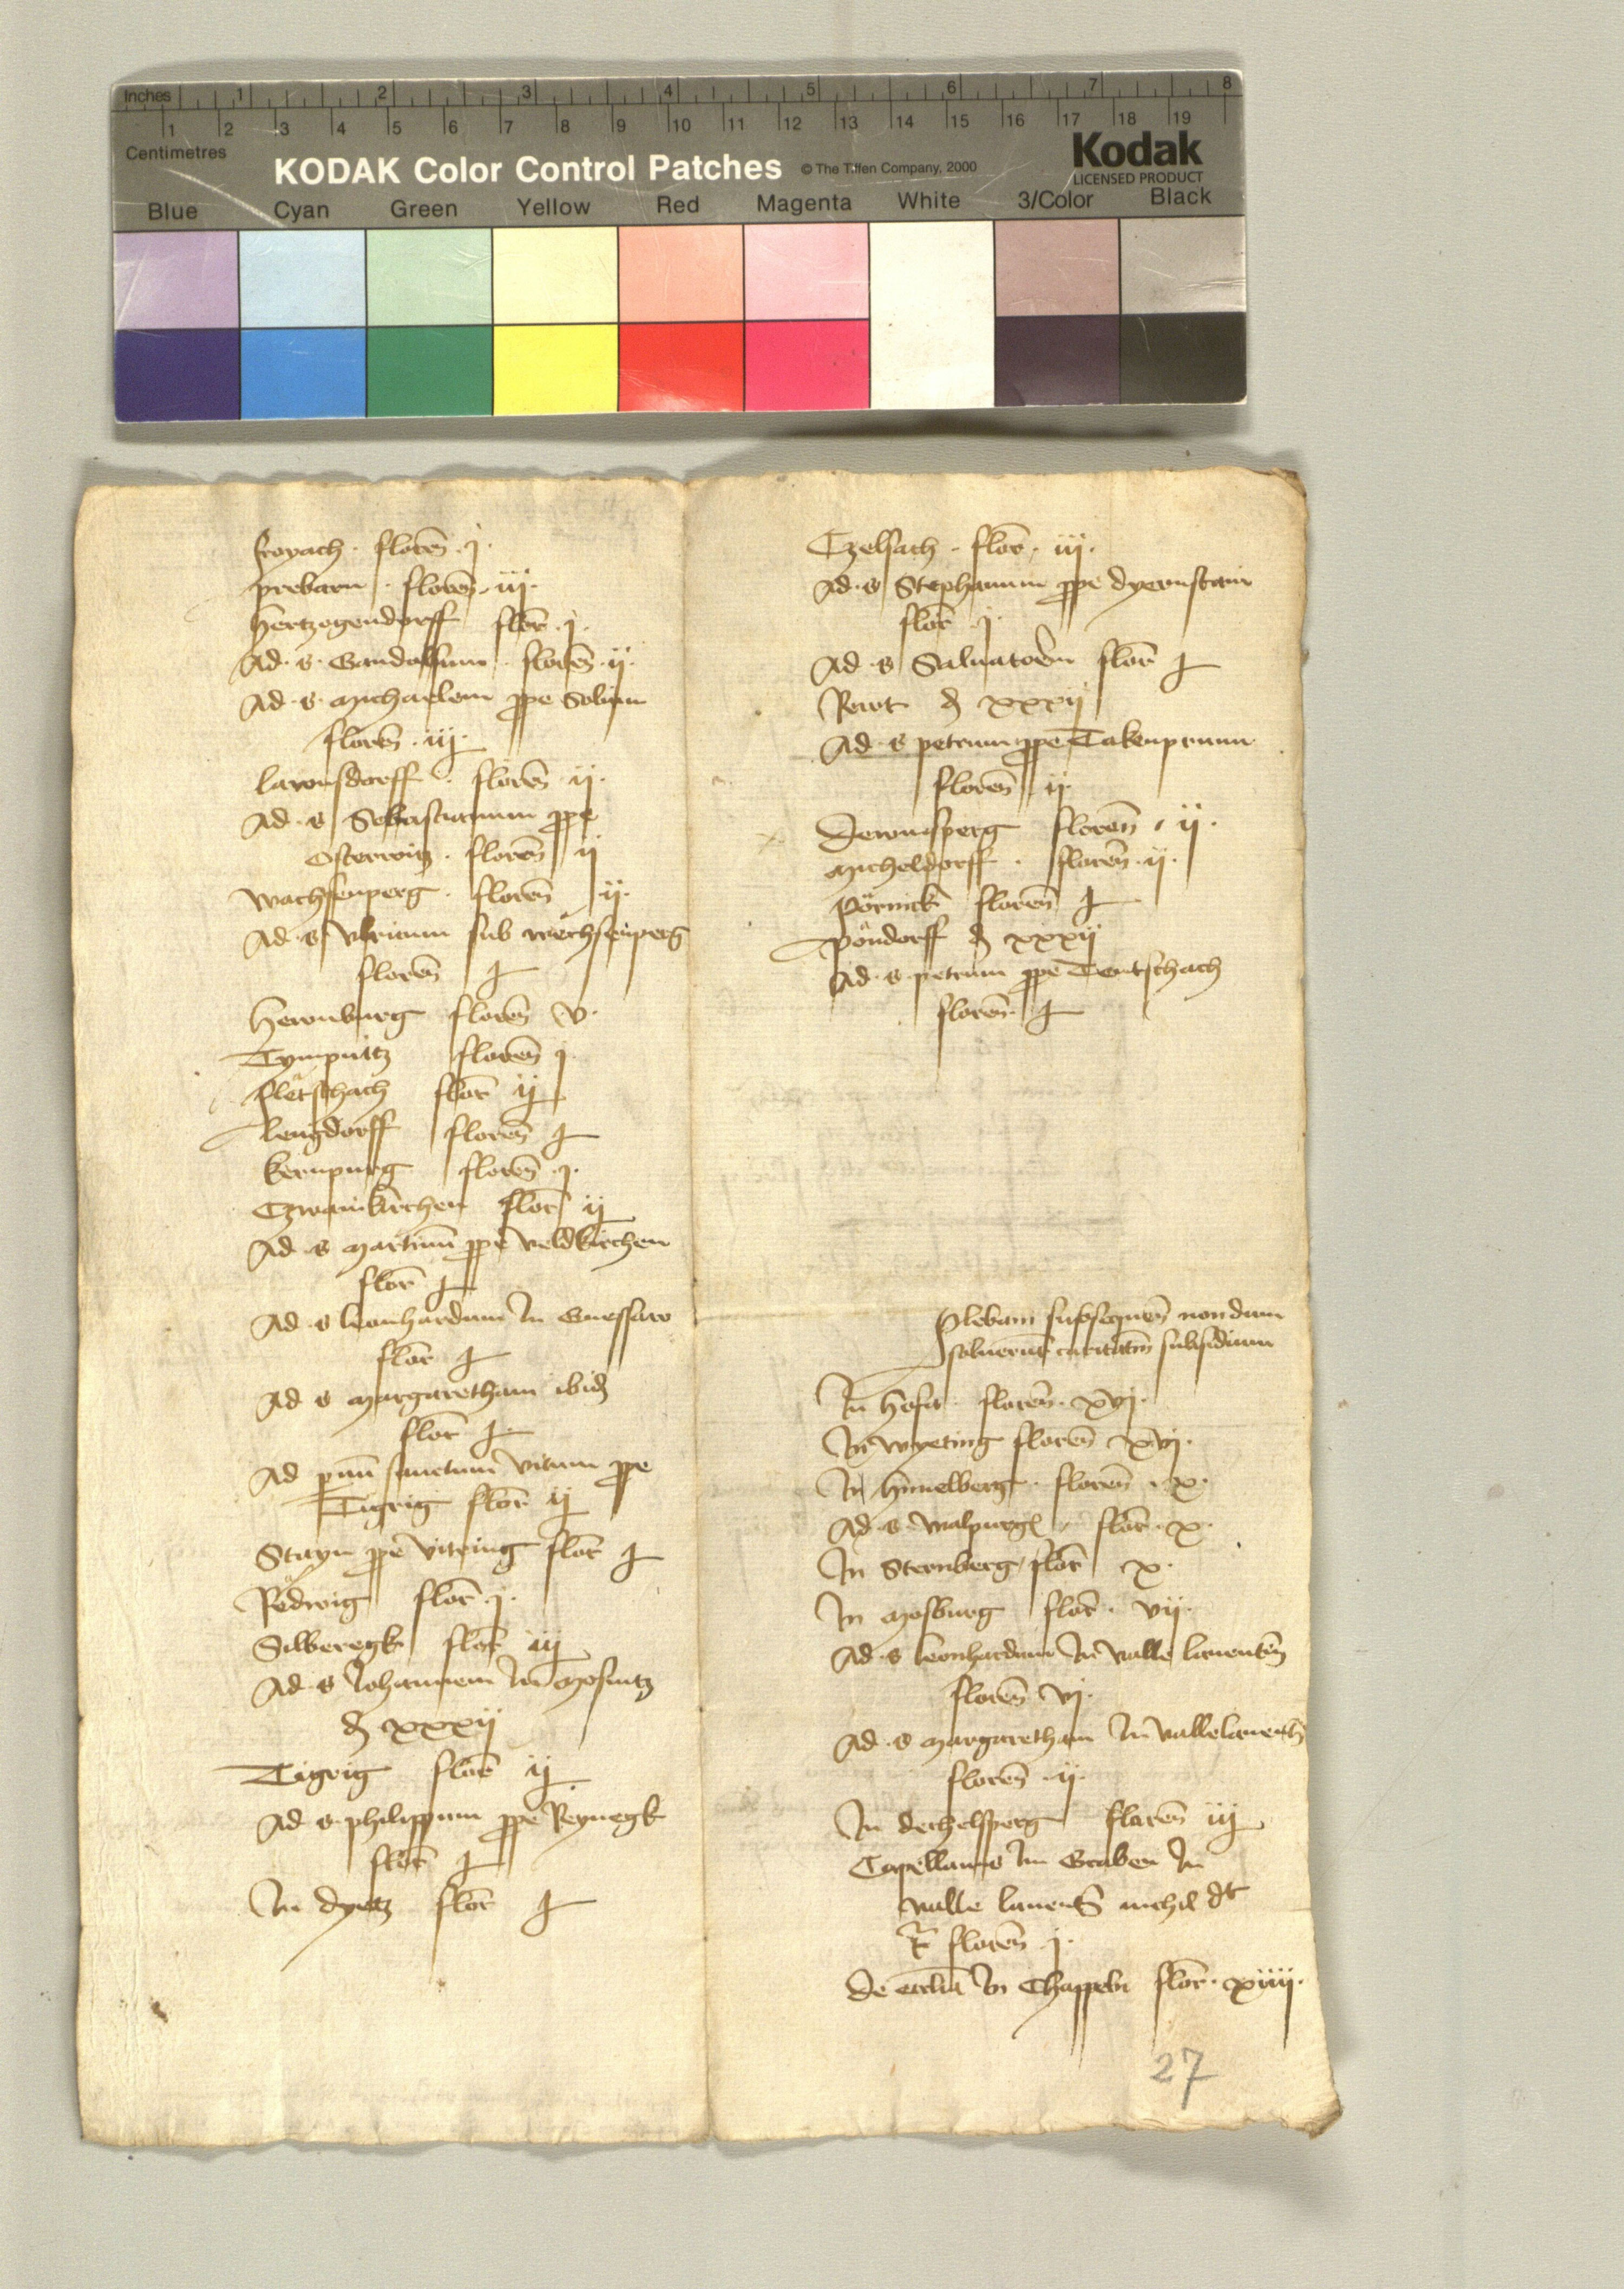 Inches 1 2 3 4 5 6 7 8
1 2 3 4 5 6 7 8 9 10 11 12 13 14 15 16 17 18 19
Centimetres
KODAK Color Control Patches © The Tiffen Company, 2000 Kodak
LICENSED PRODUCT
Blue Cyan Green Yellow Red Magenta White 3/Color Black
froyach · floreñ · j ·
prebarn · floreñ · iij ·
hertzogendorff flor̄ · j ·
Ad · s · Gandolfum · floreñ · ij ·
Ad · s · michaelem ꝓpe Solium
floreñ · iij ·
lavonsdorff · floreñ · ij ·
Ad · s Sebastianum ꝓpe
Osterwitz · floreñ ij
wachsenperg · floreñ ij ·
Ad · s vlricum sub wechsenperg
floreñ
hewnburg floreñ v ·
Tympnitz floreñ j
fletschach flor̄ ij
lengdorff floreñ
kernpurg floreñ · j ·
Czwainkirchen flor̄ ij
Ad · s martinū ꝓpe veldkirchen
flor̄
Ad · s leonhardum In Gnessaw
flor̄
Ad s margaretham ibid
flor̄
Ad sanctum vitum ꝓpe
Tigrig flor̄ ij
Stayn ꝓpe vitring flor̄
Rödwig flor̄ · j ·
Silberegk flor̄ iij
Ad · s Johannem In mosnitz
xxxij
Tigrig flor̄ ij
Ad · s · philippum ꝓpe Reynegk
flor̄
In dyetz flor̄
Tzelsach · flor̄ · iij ·
Ad · s Stephanum ꝓpe dyernstain
flor̄ · j ·
Ad · s Saluatorēm flor̄
Rewt xxxij
Ad · s petrum ꝓpe Takenprunn
floreñ ij
floreñ · ij ·
micheldorff · floreñ · ij ·
Pörnick floreñ
pöndorff xxxij
Ad · s · petrum ꝓpe Tentschach
floreñ
Plebani subsequeñ nondum
soluerūt caritatiūm subsidium
In hofst floreñ · xvj ·
In wyeting floreñ xvj ·
In himelberg · floreñ · x ·
Ad · s · walpurg flor̄ · x ·
In Sternberg flor̄ x ·
In mosburg flor̄ · vij ·
Ad · s leonhardum In valle lauenteñ
floreñ vj ·
Ad · s margaretham In valle lauenteñ
floreñ · ij ·
In dechelsperg floreñ iij
Capellanus Im Graben In
valle lauenteñ nichil dt
floreñ · j ·
de ecclia In Chappeln flor̄ · xiiij ·
27